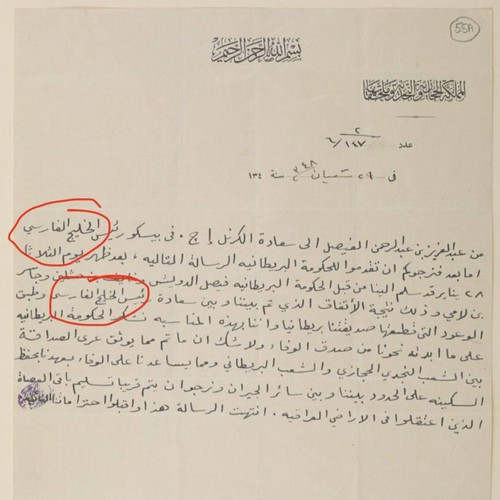 55A
بسم الله الرحمن الرحيم
المملكة الحجازية والنجدية وملحقاتها
عدد ٢/٦/١٤٧
في ٢٩ شعبان سنة ١٣٤٨
من عبد العزيز بن عبد الرحمن الفيصل الى سعادة الكرنل اج. في بيسكو رئيس الخليج الفارسي
اما بعد فنرجوكم ان تقدموا للحكومة البريطانيه الرسالة التاليه ، بعد ظهر يوم الثلاثا
٢٨ يناير قد سلم الينا من قبل الحكومة البريطانيه فيصل الدويش ونايف بن حثلين وجاسر
بن لامي وذلك نتيجة الأتفاق الذي تم بيننا وبين سعادة رئيس الخليج الفارسي وطبق
الوعود التي قطعتها صديقتنا بريطانيا واننا بهذه المناسبه نشكر الحكومة البريطانيه
على ما ابدته نحونا من صدق الوفاء ولاشك ان ما تم مما يوثق عرى الصداقة
بين الشعب النجدي الحجازي والشعب البريطاني ومما يساعدنا على الوفاء بعهدنا بحفظ
السكينه على الحدود بيننا وبين سائر الجيران ونرجوان يتم قريبا تسليم باقي العصاة
الذين اعتقلوا في الاراضي العراقيه . انتهت الرسالة هذا واقبلوا احتراماتنا